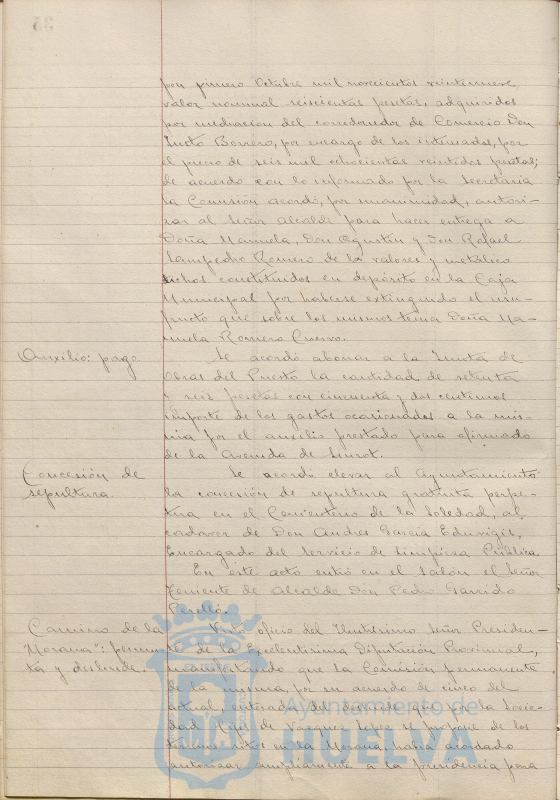 por primero Octubre mil novecientos veintenueve,
valor nominal seiscientas pesetas, adquiridos
por mediación del corredor de Comercio Don
Justo Borrero, por encargo de los interesados, por
el precio de seis mil ochocientas veintidos pesetas;
de acuerdo con lo informado por la Secretaria
la Comisión acordó, por unanimidad, autori-
zar al Señor Alcalde para hacer entrega a
Doña Manuela, Don Agustín y Don Rafael
Sampedro Romero de la valores y metálico
dichos constituidos en depósito en la Caja
Municipal por haberse extinguido el usu-
fructo que sobre los mismos tenia Doña Ma-
nuela Romero Cuervo.
Auxilio: pago. Se acordó abonar a la Junta de
Obras del Puerto la cantidad de setenta
y seis pesetas con cincuenta y dos centimos
importe de los gastos ocasionados a la mis-
ma por el auxilio prestado para afirmado
de la Avenida de
Concesión de Se acordó elevar al Ayuntamiento
sepultura. la concesión de sepultura gratuita perpe-
tua en el Cementerio de la Soledad, al
cadaver de Don Andres García Eduvigis,
Encargado del Servicio de Limpieza Pública.
En este acto entró en el salón el Señor
Teniente de Alcalde Don Pedro Garrido
Perelló.
Camino de la Visto oficio del Ilustrísimo Señor Presiden-
"Morana": permu- te de la Excelentísima Diputación Provincial,
ta y deslinde. manifestando que la Comisión permanente
de la misma, por su acuerdo de cinco del
actual, enterada del deslinde que por la Socie-
dad Hijos de Vazquez Lopez se propone de los
terrenos sitos en la Morana, habia acordado
autorizar ampliamente a la presidencia para
Ayuntamiento de
HUELVA